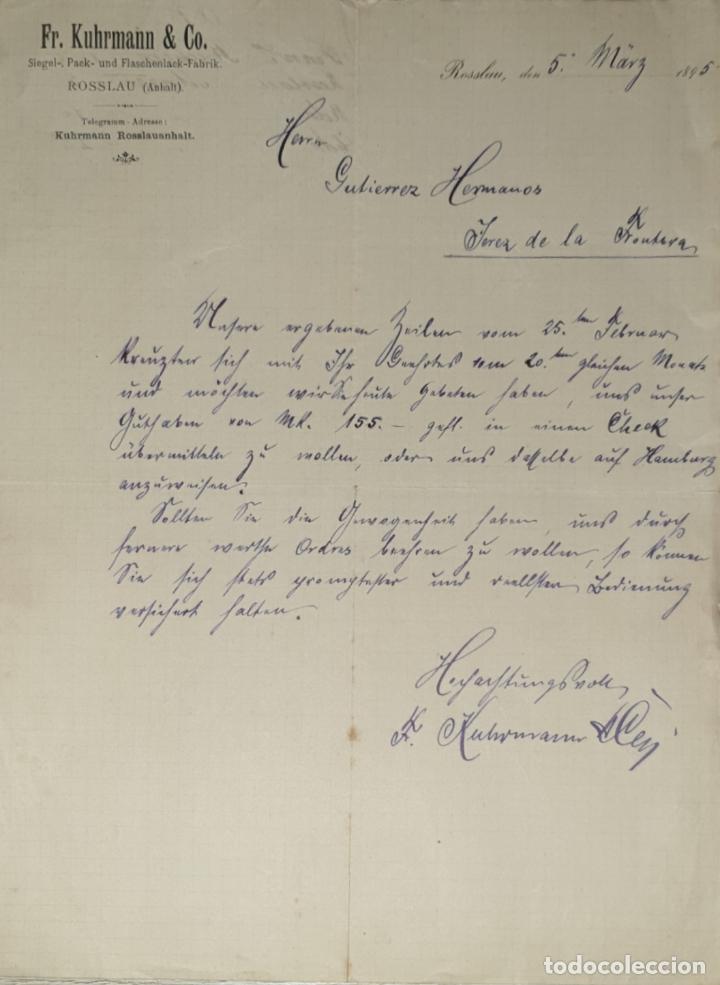 Fr. Kuhrmann & Co.
Siegel-, Pack- und Flaschenlack-Fabrik.
ROSSLAU (Anhalt).
Telegramm-Adresse:
Kuhrmann Rosslauanhalt.
Rosslau, den 5. März 1895
Herrn
Gutierrez Hermanos
Jerez de la Frontera
Unsere ergebenen Zeilen vom 25.ten Februar
kreuzten sich mit Ihr Geehrtes vom 20.ten gleichen Monats
und möchten wir Sie heute gebeten haben, uns unser
Guthaben von Mk. 155.- gefl. in einen Check
übermitteln zu wollen, oder uns dasselbe auf Hamburg
anzuweisen.
Sollten Sie die Gewogenheit haben, uns durch
fernere werthe Ordres beehren zu wollen, so können
Sie sich stets promptester und reellsten Bedienung
versichert halten.
Hochachtungsvoll
Fr. Kuhrmann & Co
todocoleccion